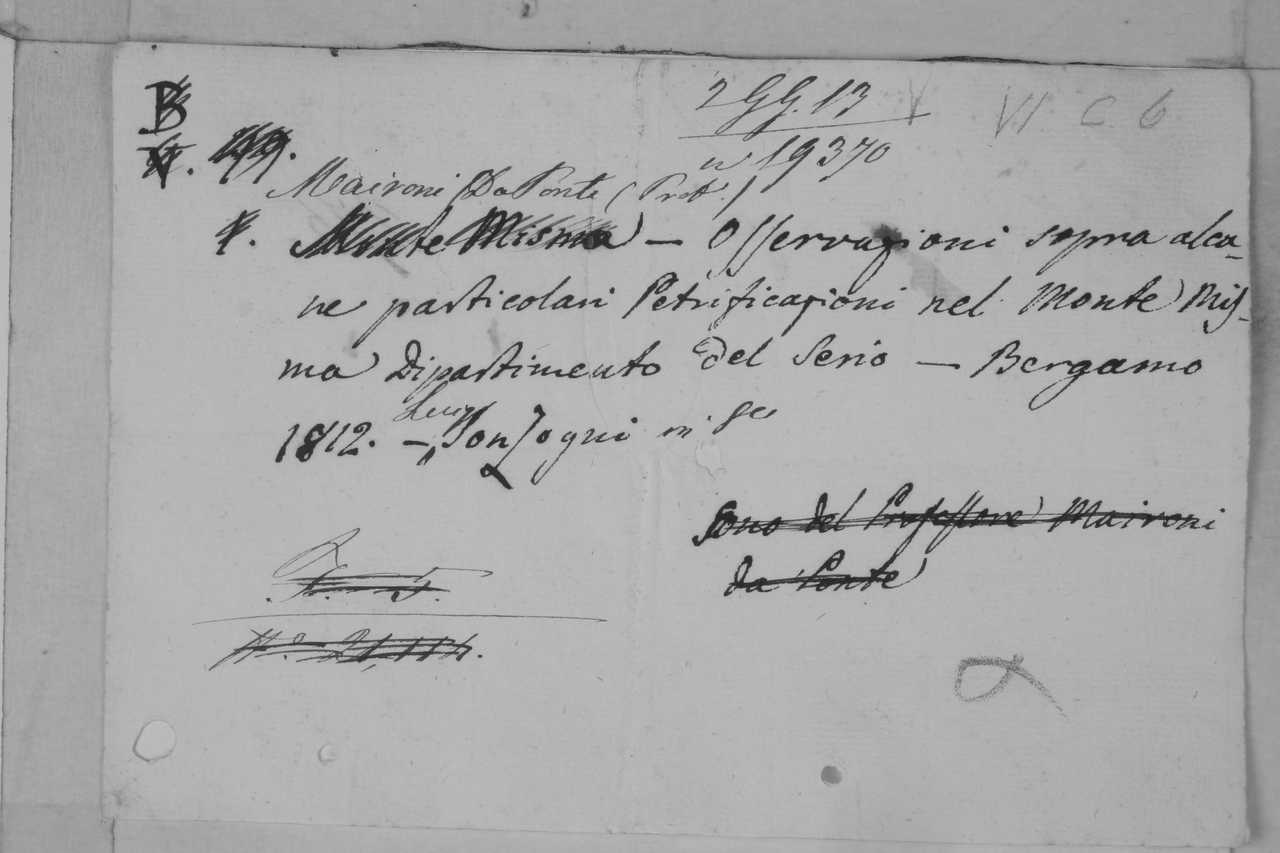 2 GG. 13 V VI C 6
B
V. 49.
n 19370
Maironi Da Ponte (Prof.)
4. Monte Misma — Osservazioni sopra alcu-
ne particolari Petrificazioni nel Monte Mis-
ma Dipartimento del Serio — Bergamo
Luigi
1812. — Sonzogni in
Sono del Professore Maironi
da Ponte